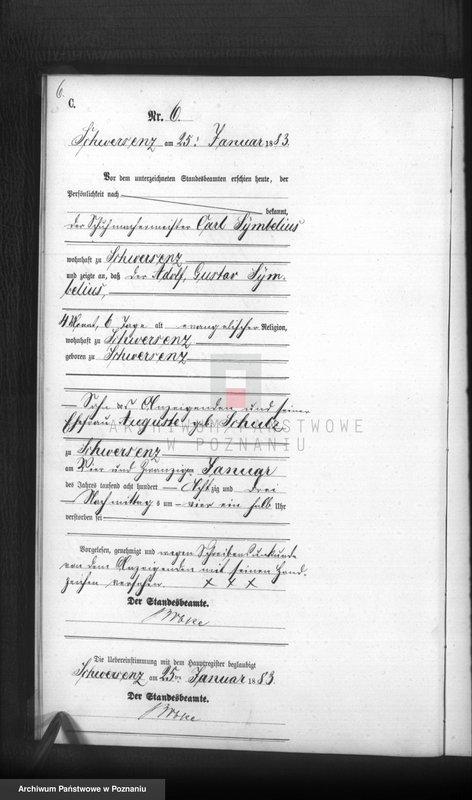 6.
C.
Nr. 6.
Schwersenz am 25ᵗ Januar 1883.
Vor dem unterzeichneten Standesbeamten erschien heute, der
Persönlichkeit nach
bekannt,
der Schuhmachermeister Carl Symbelius
wohnhaft zu Schwersenz
und zeigte an, daß der Adolf, Gustav Sym-
belius,
4 Monat, 6 Tage alt evangelischer Religion,
wohnhaft zu Schwersenz
geboren zu Schwersenz
Sohn des Anzeigenden und seiner
Ehefrau Auguste geb. Schulz
zu Schwersenz
am Vier und Zwanzigsten Januar
des Jahres tausend acht hundert Achtzig und drei
Nachmittags um vier ein halb Uhr
verstorben sei
Vorgelesen, genehmigt und wegen Schreibensunkunde
von dem Anzeigenden mit seinen Hand-
zeichen versehen. x x x
Der Standesbeamte.
Die Uebereinstimmung mit dem Hauptregister beglaubigt
Schwersenz am 25ten Januar 1883.
Der Standesbeamte.
ARCHIWUM PAŃSTWOWE
W POZNANIU
Archiwum Państwowe w Poznaniu